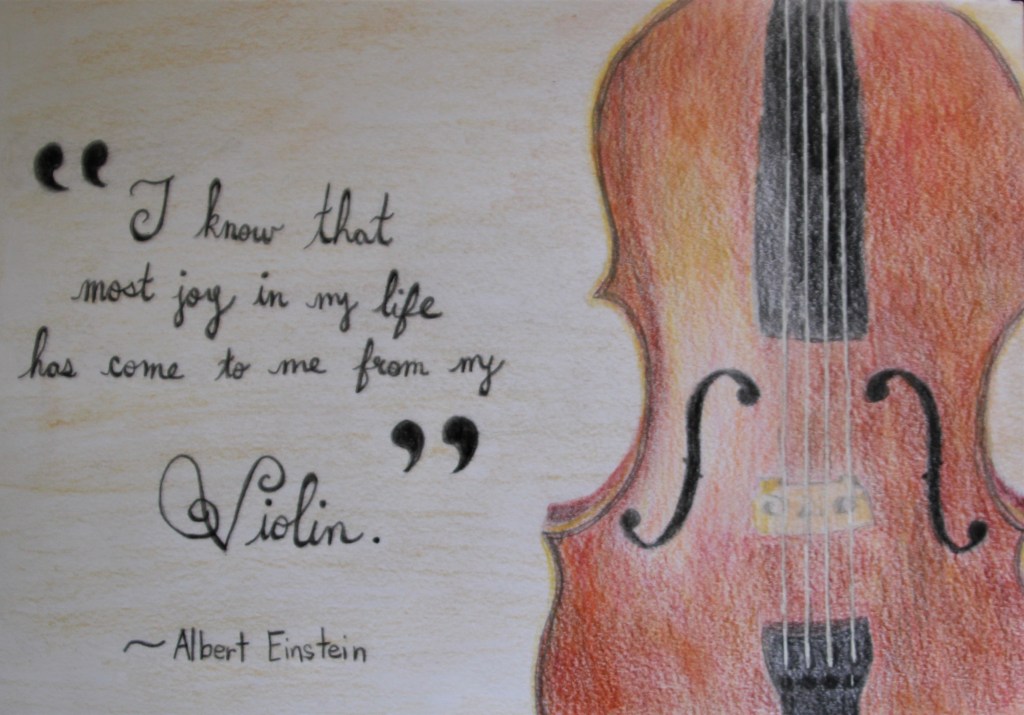 “ I know that
most joy in my life
has come to me from my
Violin. ”
~ Albert Einstein